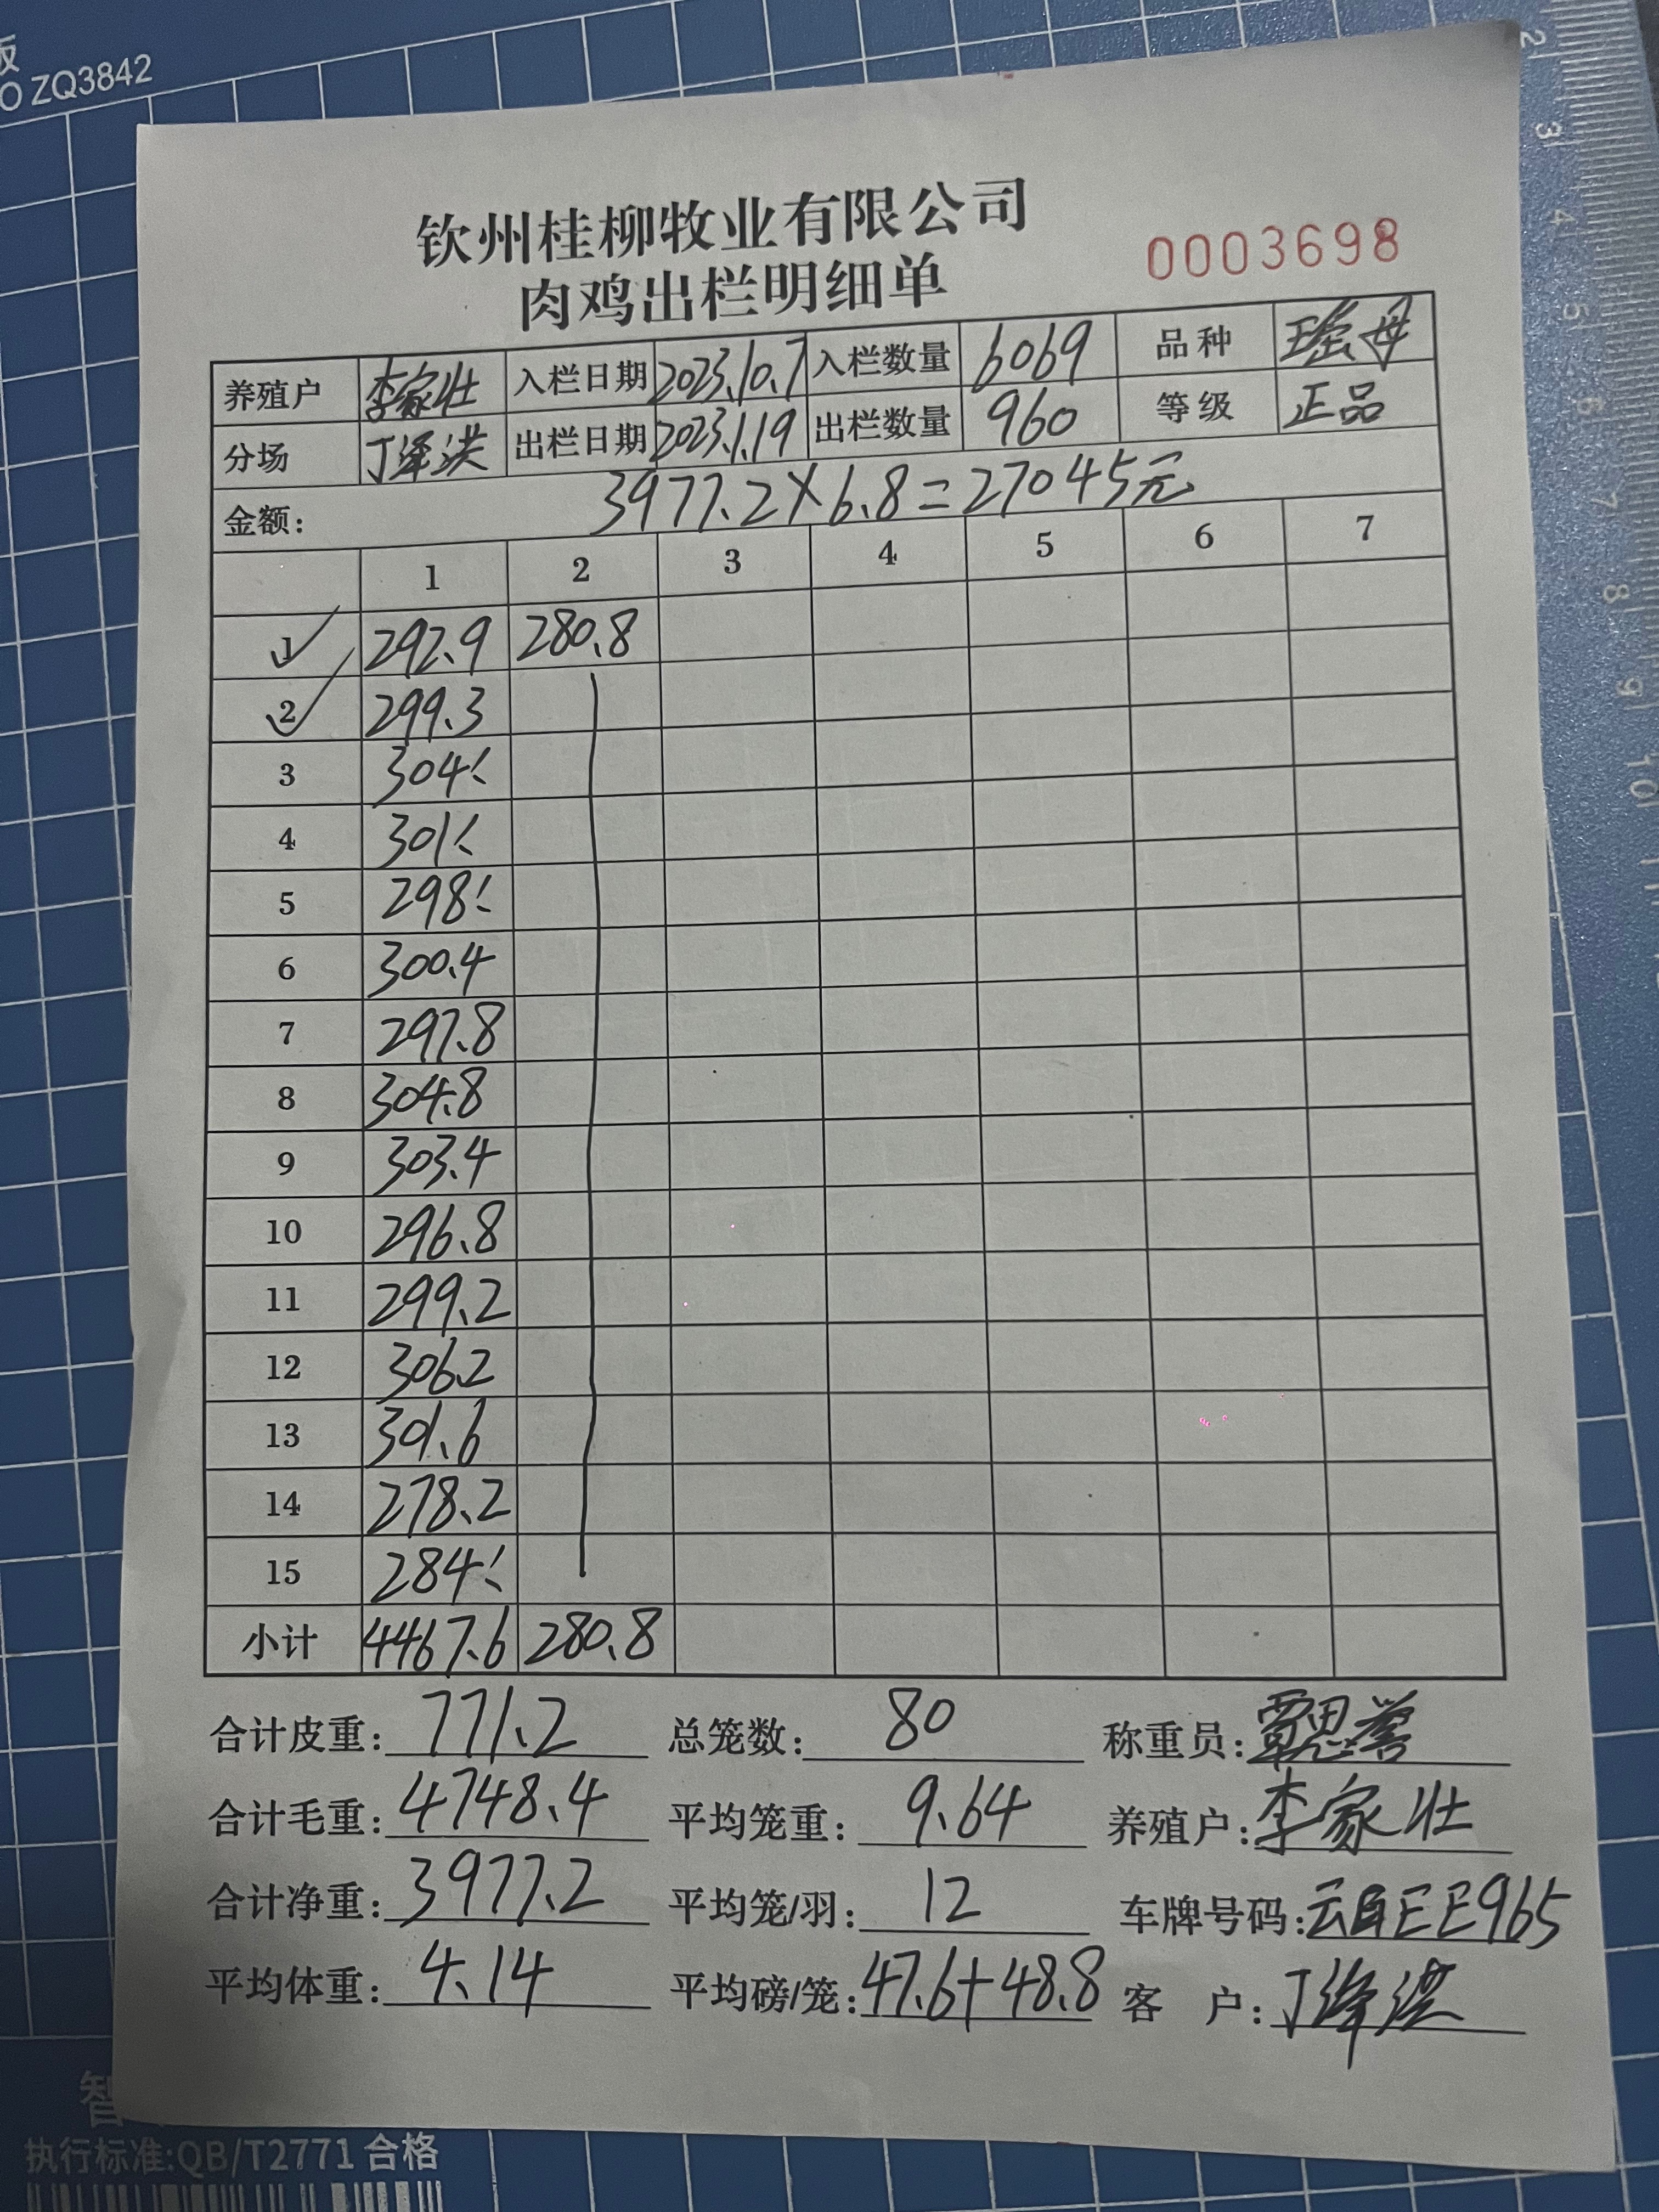 ZQ3842
钦州桂柳牧业有限公司
0003698
肉鸡出栏明细单
养殖户 李家壮 入栏日期 2023.10.7 入栏数量 6069 品种
分场 丁泽洪 出栏日期 2023.1.19 出栏数量 960 等级 正品
金额: 3977.2×6.8=27045元
1 2 3 4 5 6 7
1 292.9 280.8
2 299.3
3 304
4 301
5 298
6 300.4
7 297.8
8 304.8
9 303.4
10 296.8
11 299.2
12 306.2
13 301.6
14 278.2
15 284
小计 4467.6 280.8
合计皮重: 771.2 总笼数: 80 称重员: 覃思誉
合计毛重: 4748.4 平均笼重: 9.64 养殖户: 李家壮
合计净重: 3977.2 平均笼/羽: 12 车牌号码: EE965
平均体重: 4.14 平均磅/笼: 47.6+48.8 客 户: 丁泽洪
智
执行标准:QB/T2771 合格
2
3
4
5
6
7
8
9
10